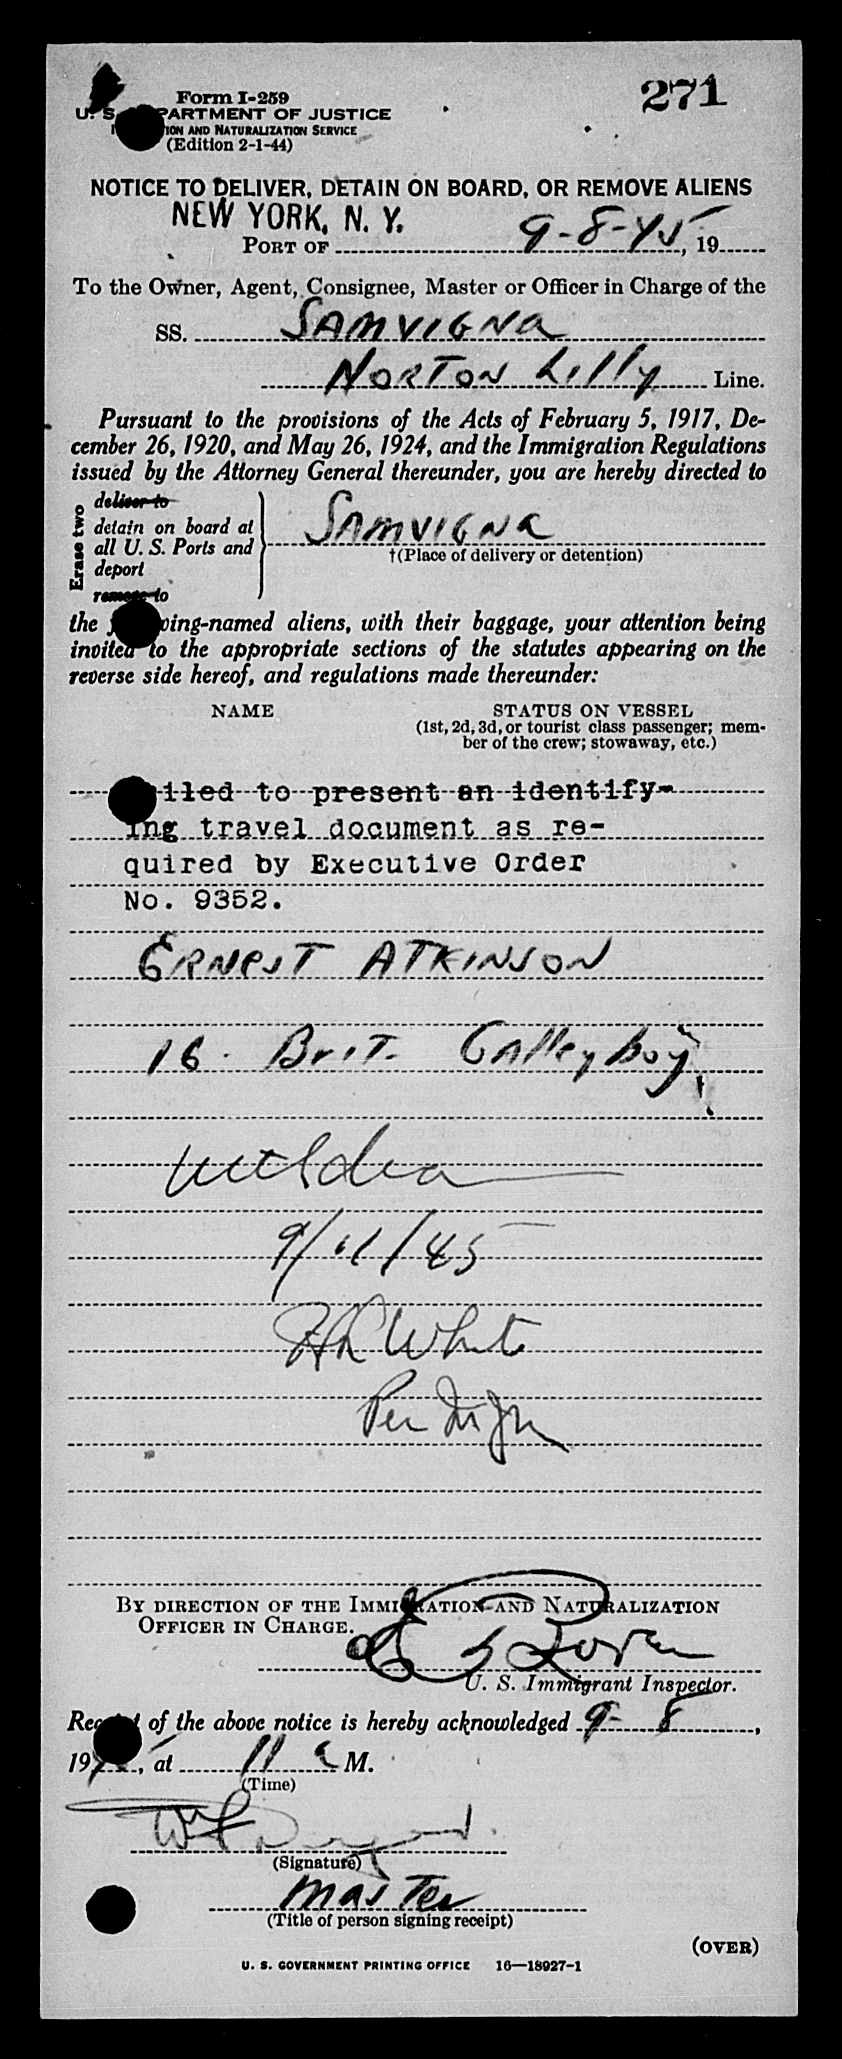 Form I-259
271
U. S. DEPARTMENT OF JUSTICE
ION AND NATURALIZATION SERVICE
(Edition 2-1-44)
NOTICE TO DELIVER, DETAIN ON BOARD, OR REMOVE ALIENS
NEW YORK, N. Y.
PORT OF 9-8-45, 19
To the Owner, Agent, Consignee, Master or Officer in Charge of the
SS. SAMVIGNA
NORTON Lilly Line.
Pursuant to the provisions of the Acts of February 5, 1917, De-
cember 26, 1920, and May 26, 1924, and the Immigration Regulations
issued by the Attorney General thereunder, you are hereby directed to
Erase two
deliver to
detain on board at
all U. S. Ports and
deport
remove to
SAMVIGNA
†(Place of delivery or detention)
the wing-named aliens, with their baggage, your attention being
invited to the appropriate sections of the statutes appearing on the
reverse side hereof, and regulations made thereunder:
NAME
STATUS ON VESSEL
(1st, 2d, 3d, or tourist class passenger; mem-
ber of the crew; stowaway, etc.)
iled to present an identify-
ing travel document as re-
quired by Executive Order
No. 9352.
ERNEST ATKINSON
16. Brit. Galley Boy
9/11/45
White
Per
BY DIRECTION OF THE IMMIGRATION AND NATURALIZATION
OFFICER IN CHARGE.
U. S. Immigrant Inspector.
Receipt of the above notice is hereby acknowledged 9-8,
1945, at 11 a M.
(Time)
(Signature)
Master
(Title of person signing receipt)
(OVER)
U. S. GOVERNMENT PRINTING OFFICE 16—18927-1